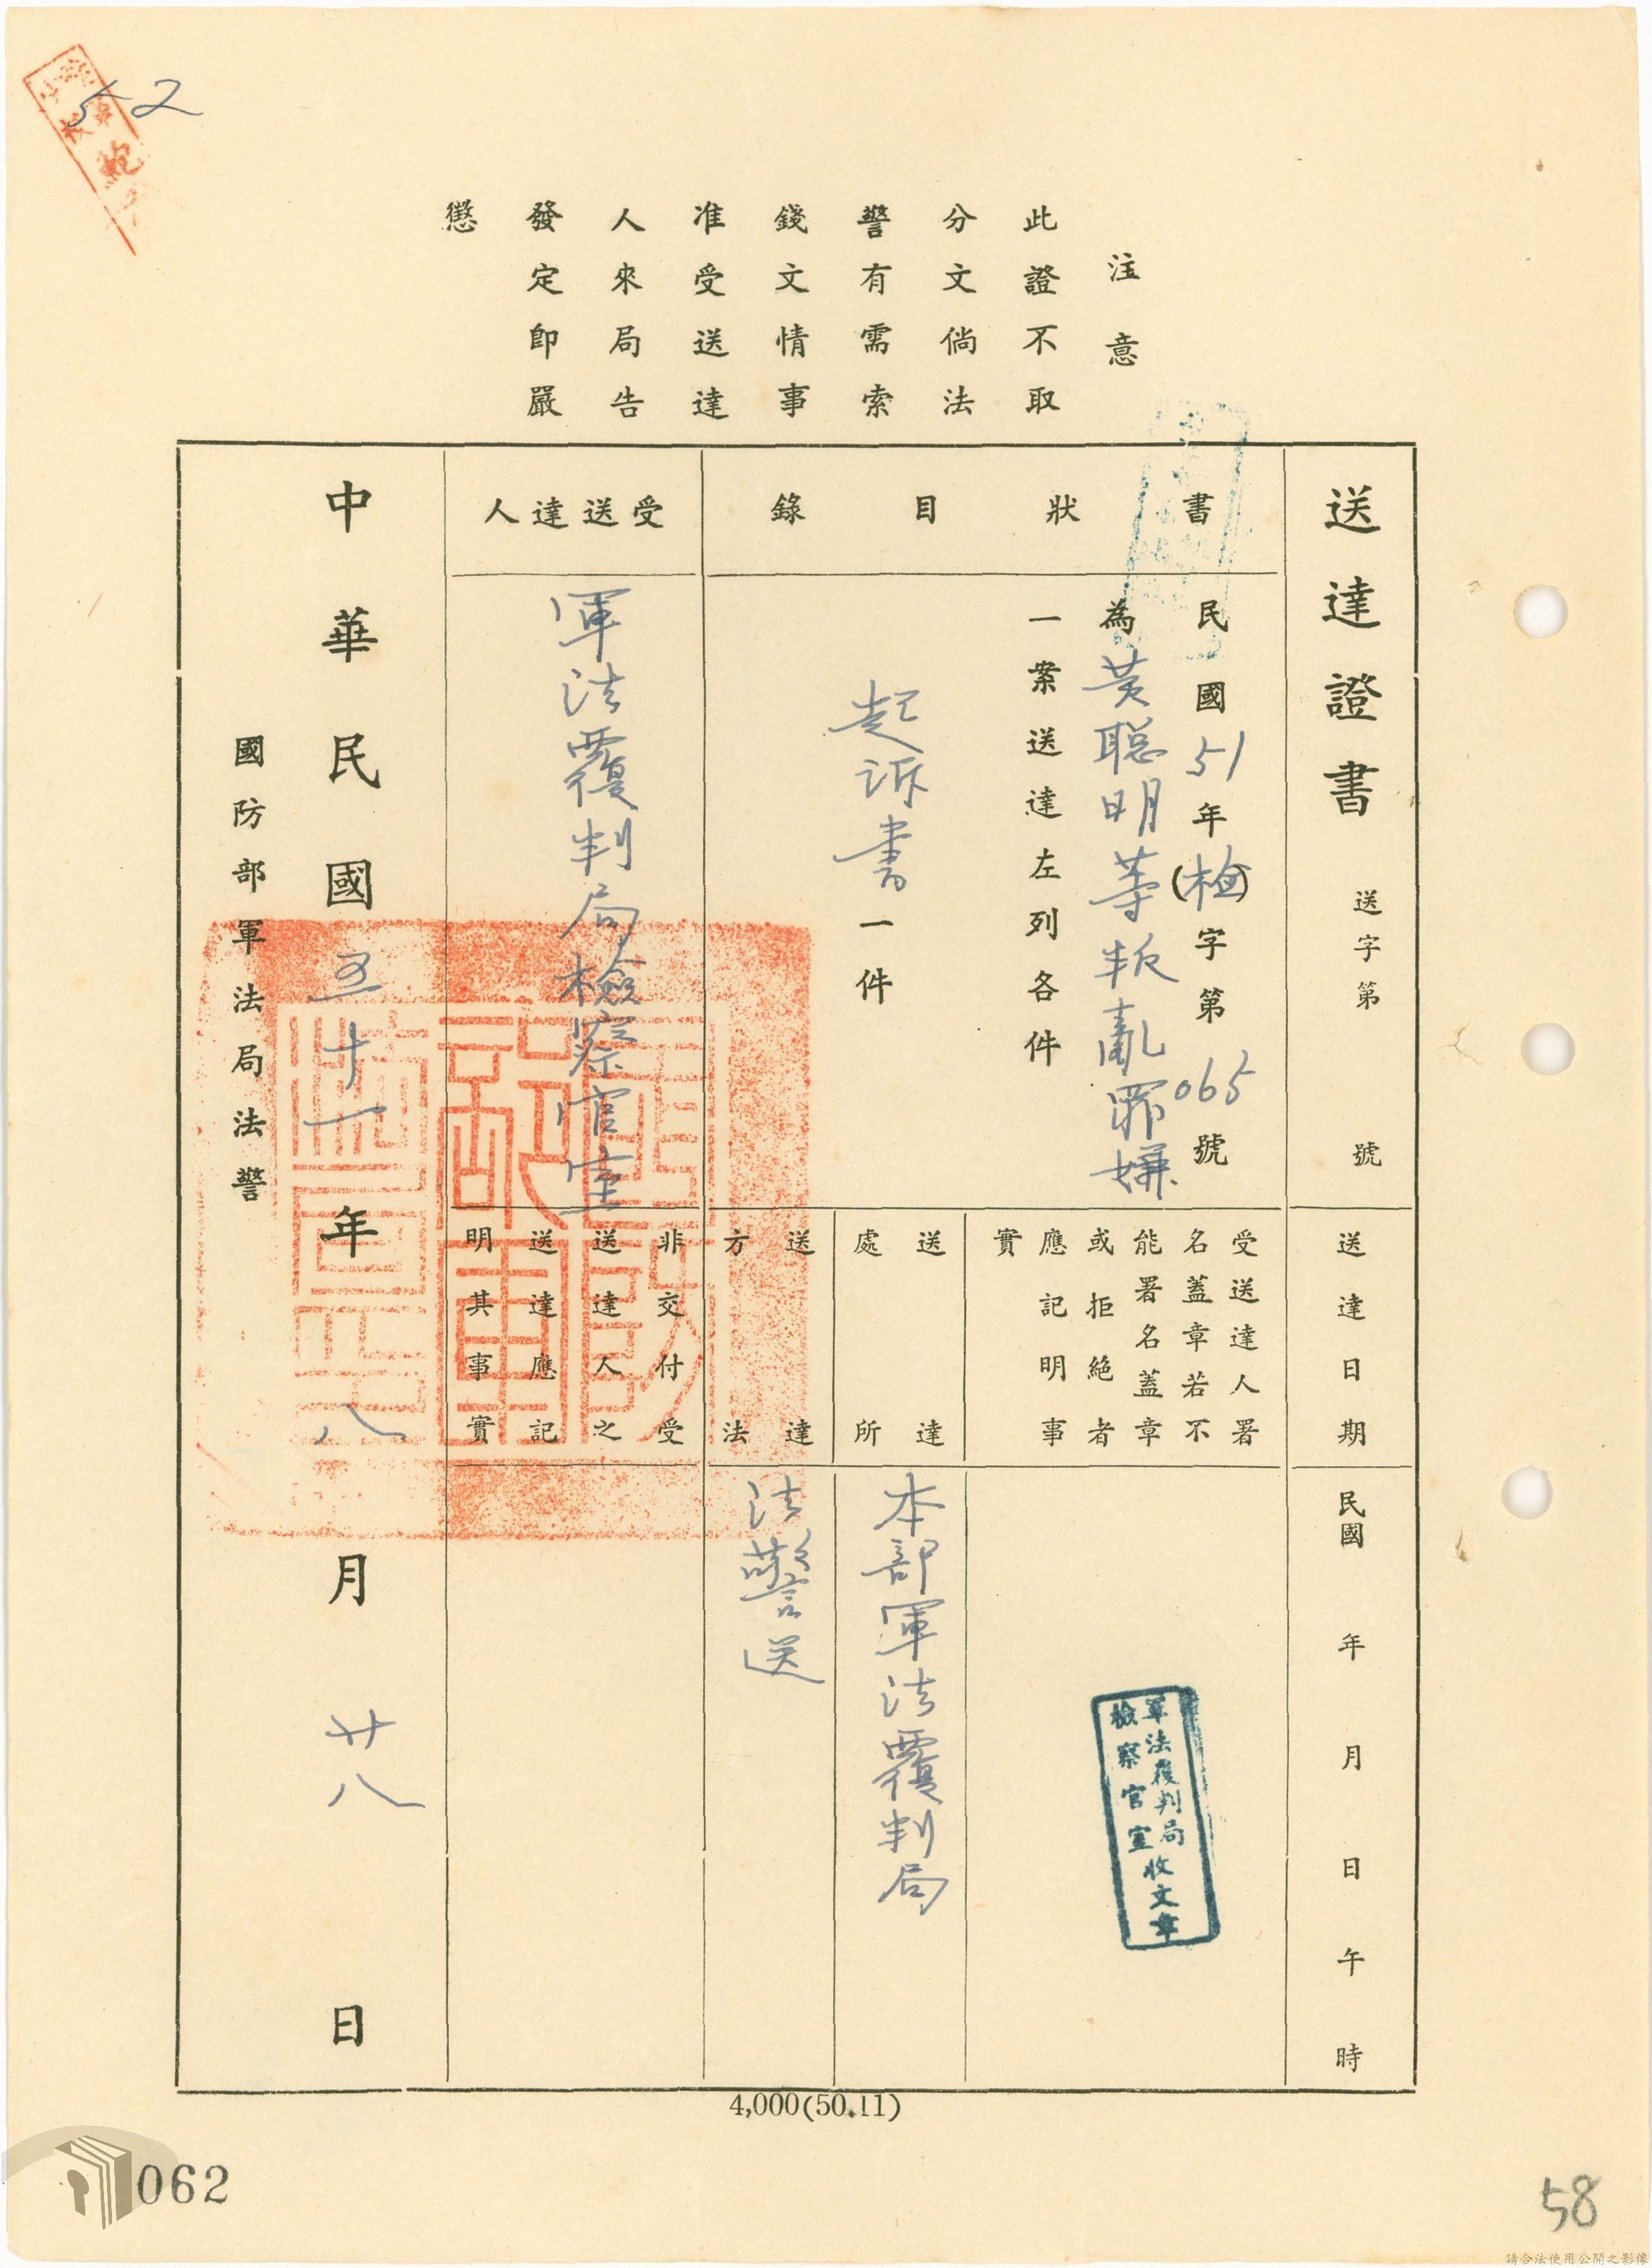 52
注意
此證不取
分文倘法
警有需索
錢文情事
准受送達
人來局告
發定即嚴
懲
送達證書 送字第 號
送達日期
民國 年 月 日 午 時
書狀目錄
民國51年(檢)字第065號
為黃聰明等叛亂罪嫌
一案送達左列各件
起訴書一件
受送達人署
名蓋章若不
能署名蓋章
或拒絕者
應記明事
實
軍法覆判局
檢察官室收文章
送達
處所
本部軍法覆判局
送達
方法
法警送
受送達人
軍法覆判局檢察官室
非交付受
送達人之
送達應記
明其事實
中華民國五十一年八月廿八日
國防部軍法局法警
4,000(50.11)
062
58
請合法使用公開之影像